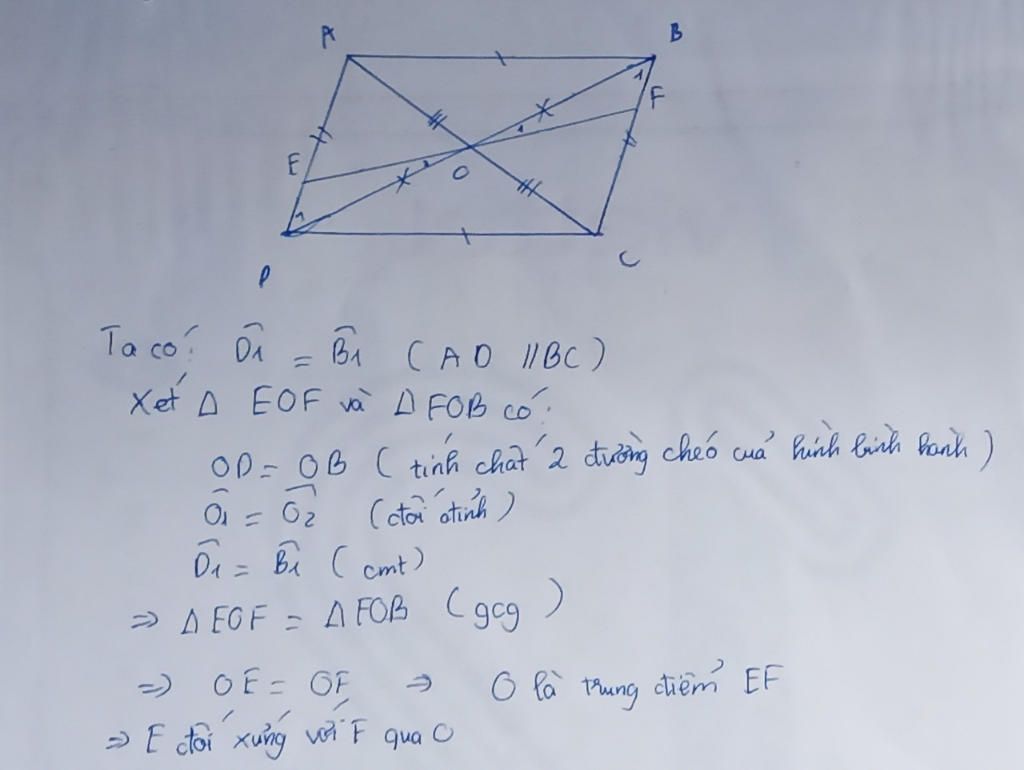 A B
1 F
E 1
2
O
1
D C
Ta có: D̂1 = B̂1 (AD // BC)
Xét Δ EOF và Δ FOB có:
OD = OB (tính chất 2 đường chéo cuả hình bình hành)
Ô1 = Ô2 (đối đỉnh)
D̂1 = B̂1 (cmt)
=> Δ EOF = Δ FOB (gcg)
=> OE = OF => O là trung điểm EF
=> E đối xứng với F qua O